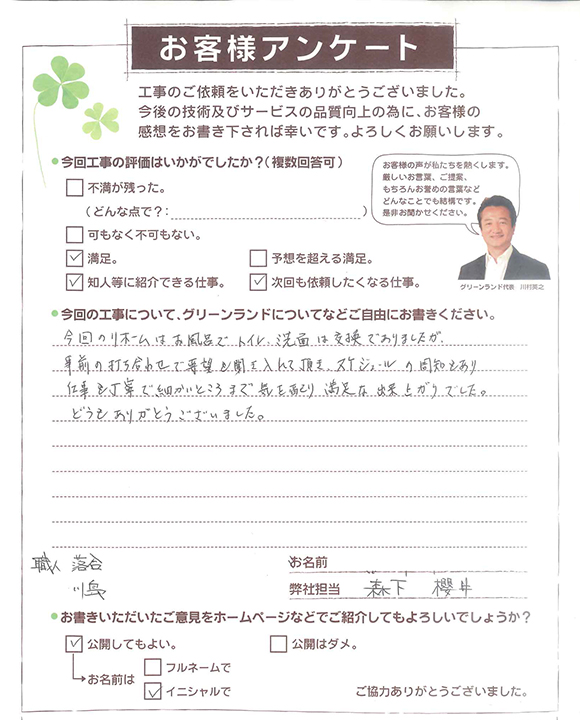 お客様アンケート
工事のご依頼をいただきありがとうございました。
今後の技術及びサービスの品質向上の為に、お客様の
感想をお書き下されば幸いです。よろしくお願いします。
今回工事の評価はいかがでしたか？（複数回答可）
不満が残った。
（どんな点で？：　　　）
可もなく不可もない。
満足。
予想を超える満足。
知人等に紹介できる仕事。
次回も依頼したくなる仕事。
お客様の声が私たちを熱くします。
厳しいお言葉、ご提案、
もちろんお誉めの言葉など
どんなことでも結構です。
是非お聞かせください。
グリーンランド代表 川村英之
今回の工事について、グリーンランドについてなどご自由にお書きください。
今回のリホームはお風呂でトイレ、洗面は交換でありましたが、
事前の打ち合わせで要望を聞き入れて頂き、スケジュールの周知もあり
仕事も丁寧で細かいところまで気を配り満足な出来上がりでした。
どうもありがとうございました。
職人 落合
川島
お名前
弊社担当 森下 櫻井
お書きいただいたご意見をホームページなどでご紹介してもよろしいでしょうか？
公開してもよい。
公開はダメ。
お名前は
フルネームで
イニシャルで
ご協力ありがとうございました。